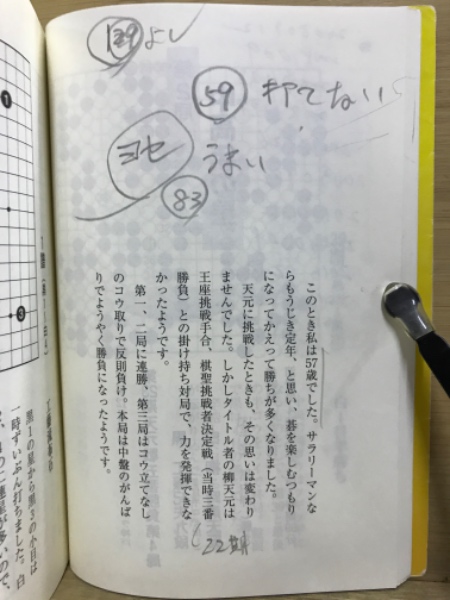 139 よし
59 打てない
ヨセ うまい
83
このとき私は57歳でした。サラリーマンな
らもうじき定年、と思い、碁を楽しむつもり
になってかえって勝ちが多くなりました。
天元に挑戦したときも、その思いは変わり
ませんでした。しかしタイトル者の柳天元は
王座挑戦手合、棋聖挑戦者決定戦（当時三番
勝負）との掛け持ち対局で、力を発揮できな
かったようです。
第一、二局に連勝、第三局はコウ立てなし
のコウ取りで反則負け。本局は中盤のがんば
りでようやく勝負になったようです。
22期
1
3
1譜
黒1の星から黒3の小目は
一時ずいぶん打ちました。白